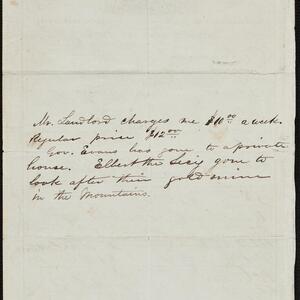 Mr. Landlord charges me $10.00 a week.
Regular price $12.00
Gov. Evans has gone to a private
house. Elbert the Sec'y gone to
look after their gold mine
in the Mountains.